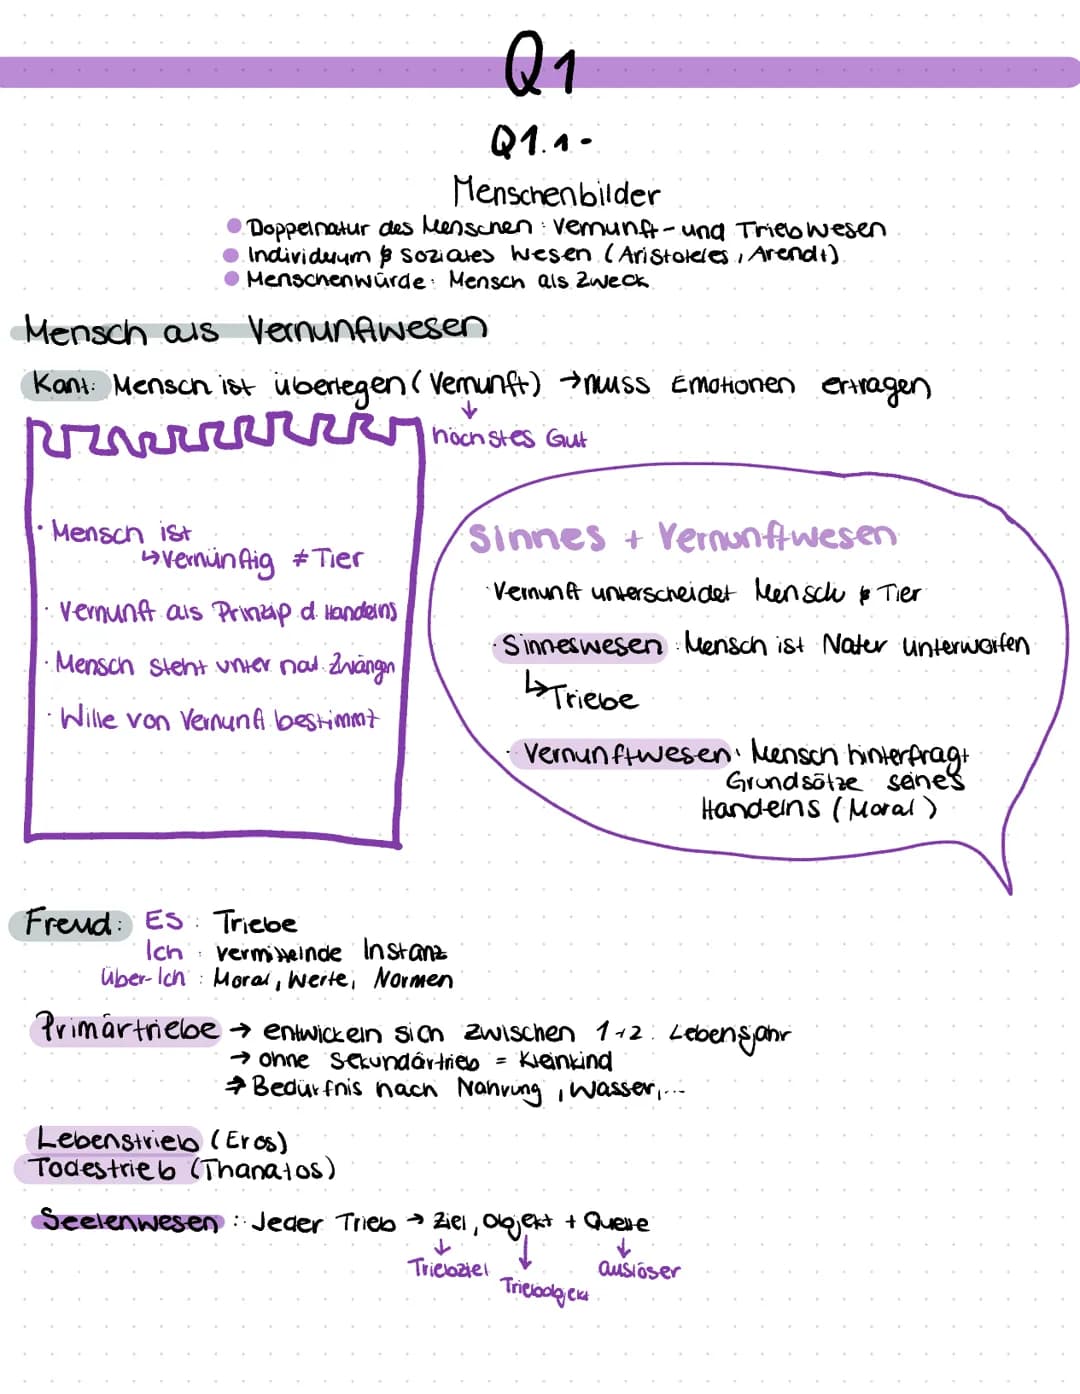 Q1
Q1.1-
Menschenbilder
Doppelnatur des Menschen : Vernunft- und Triebwesen
Individuum & soziales Wesen (Aristoteles, Arendt)
Menschenwürde: Mensch als Zweck
Mensch als Vernunftwesen
Kant: Mensch ist überlegen (Vernunft) → muss Emotionen ertragen
↓
höchstes Gut
· Mensch ist
↳ vernünftig ≠ Tier
· Vernunft als Prinzip d. Handelns
· Mensch steht unter nat. Zwängn
· Wille von Vernunft bestimmt
Sinnes + Vernunftwesen
· Vernunft unterscheidet Mensch & Tier
· Sinneswesen : Mensch ist Nater unterworfen
↳ Triebe
· Vernunftwesen: Mensch hinterfragt
Grundsätze seines
Handelns (Moral)
Freud: ES : Triebe
Ich : vermittelnde Instanz
Über-Ich : Moral, Werte, Normen
Primärtriebe → entwickeln sich zwischen 1+2. Lebensjahr
→ ohne Sekundärtrieb = Kleinkind
→ Bedürfnis nach Nahrung, Wasser,...
Lebenstrieb (Eros)
Todestrieb (Thanatos)
Seelenwesen : Jeder Trieb → Ziel, Objekt + Quelle
↓ ↓ ↓
Triebziel Triebobjekt auslöser